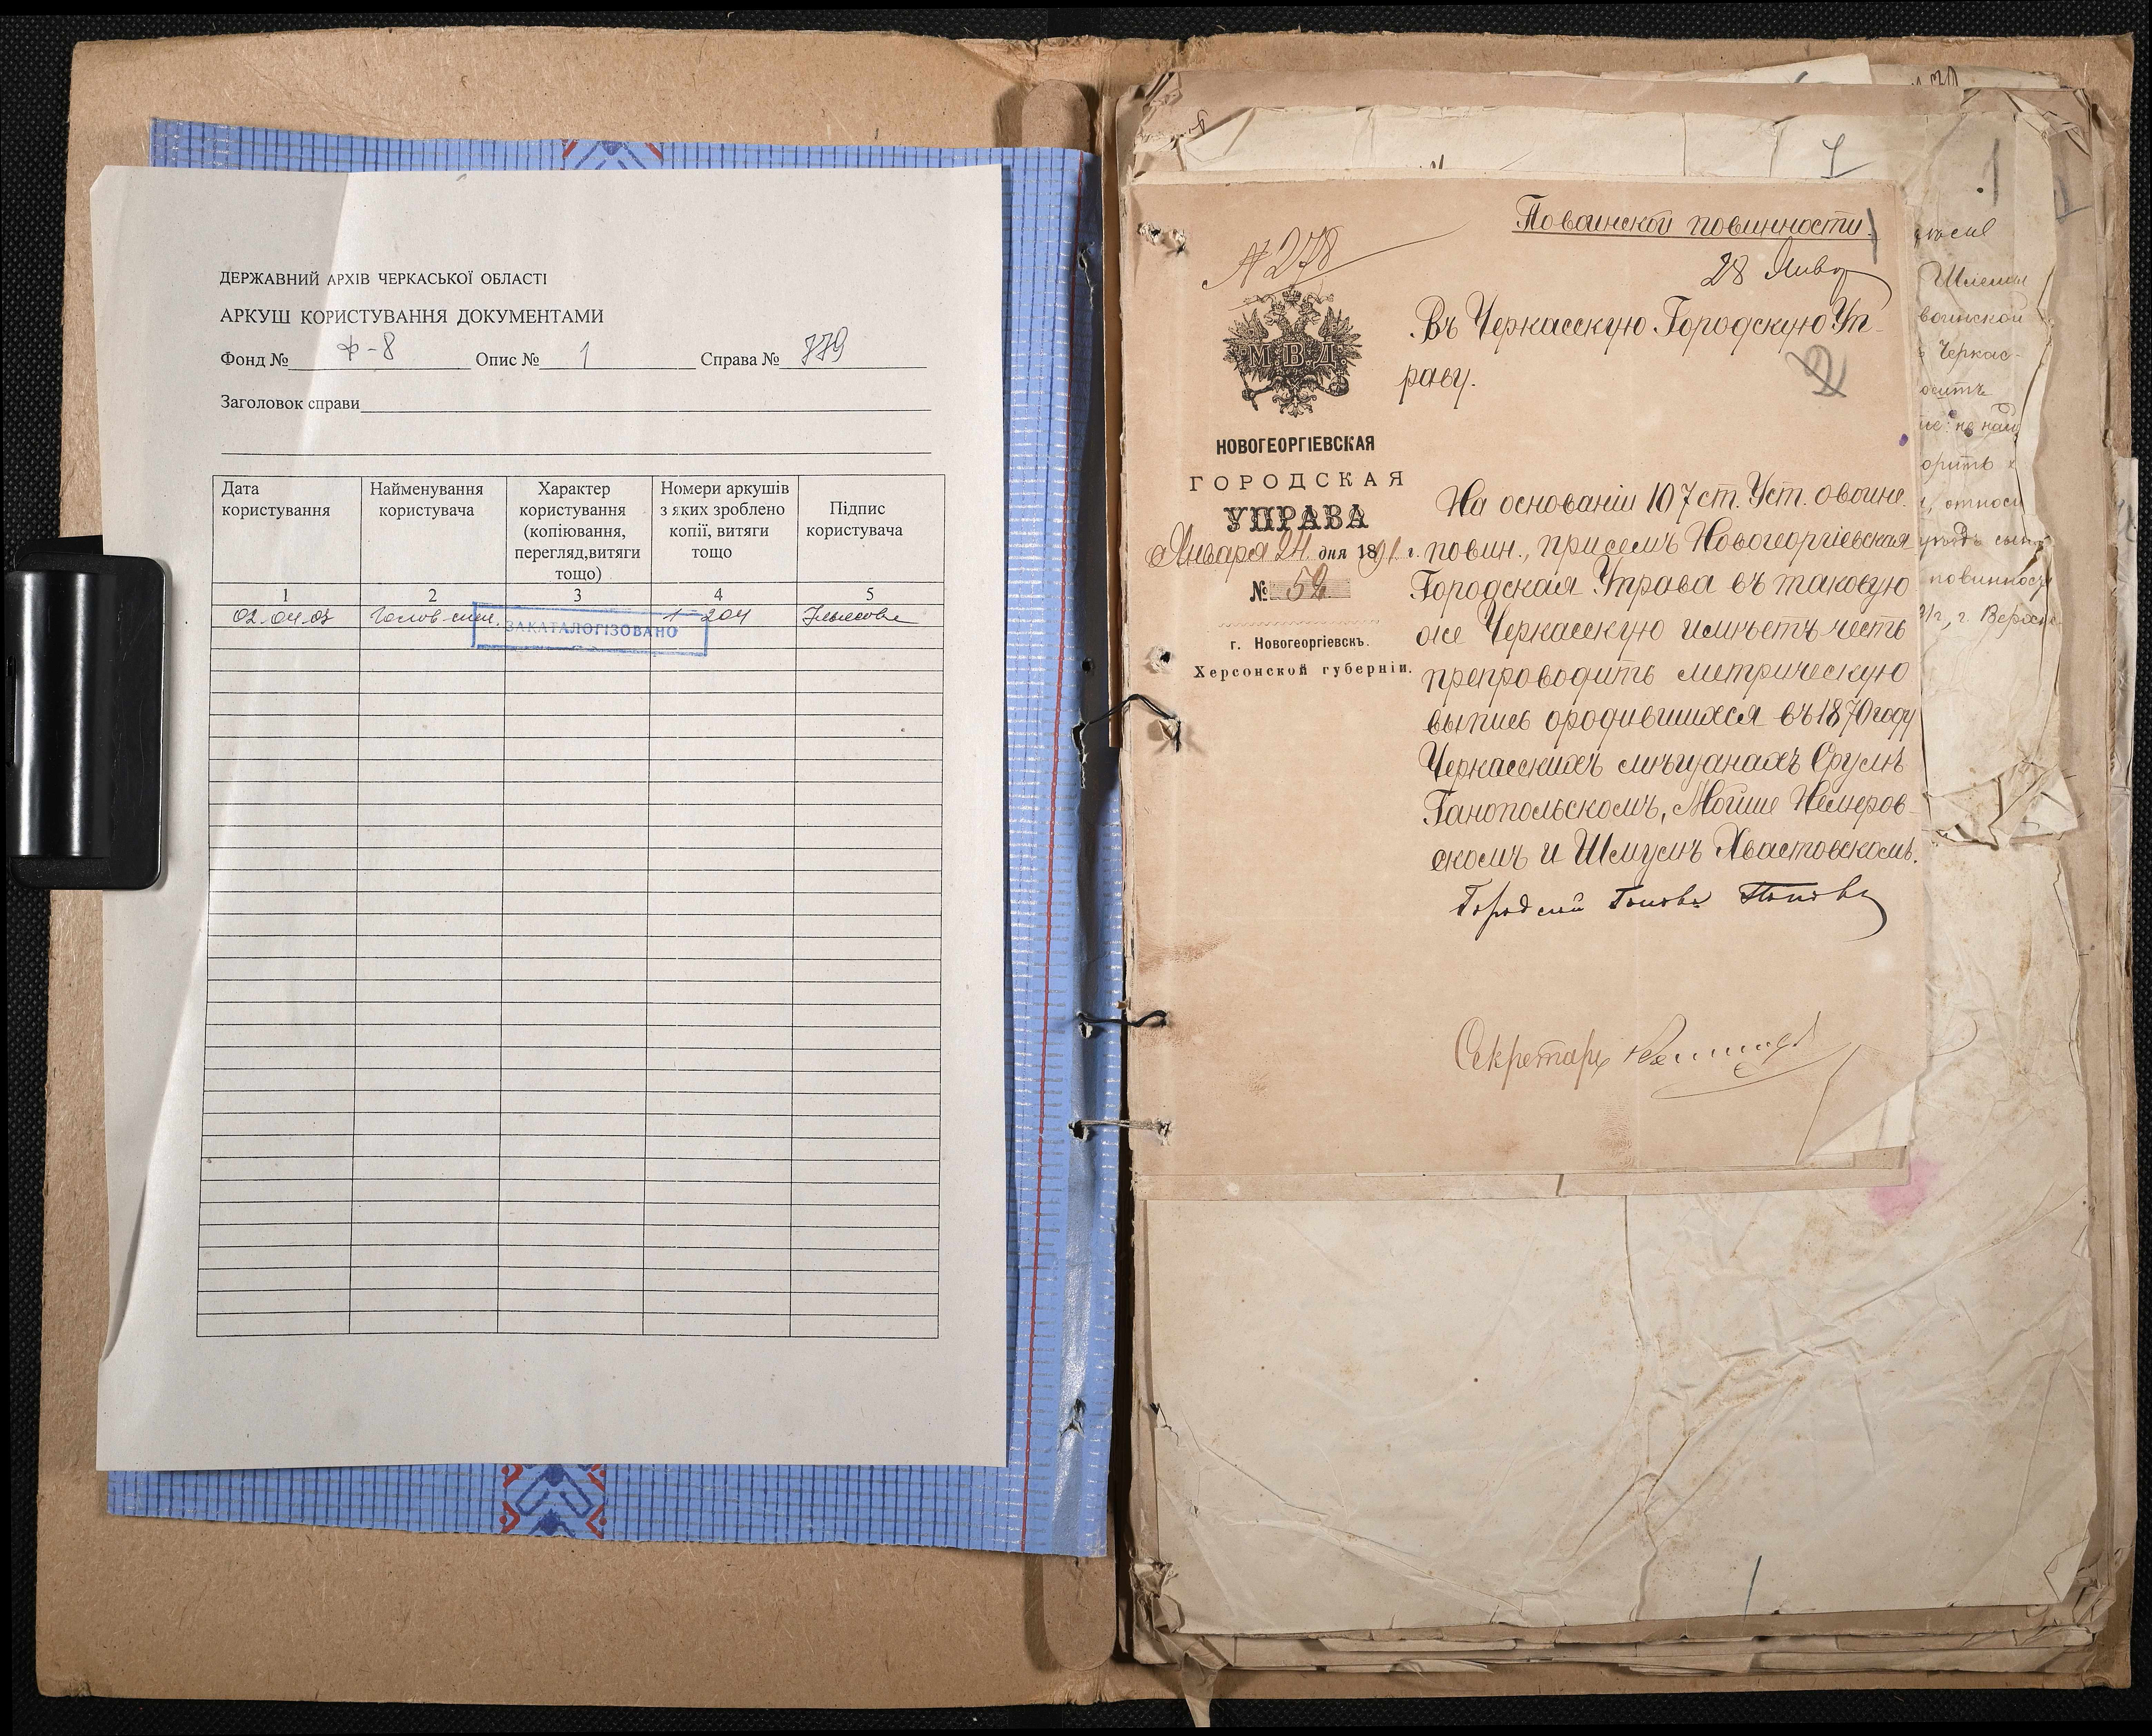 ДЕРЖАВНИЙ АРХІВ ЧЕРКАСЬКОЇ ОБЛАСТІ
АРКУШ КОРИСТУВАННЯ ДОКУМЕНТАМИ
Фонд № Ф-8 Опис № 1 Справа № 779
Заголовок справи
Дата користування
Найменування користувача
Характер користування (копіювання, перегляд,витяги тощо)
Номери аркушів з яких зроблено копії, витяги тощо
Підпис користувача
1 2 3 4 5
02.04.03 1-204
ЗАКАТАЛОГІЗОВАНО
1
По воинской повинности.
№ 278
28 Янв
М.В.Д.
Въ Черкасскую Городскую Уп-
раву.
2
НОВОГЕОРГІЕВСКАЯ
ГОРОДСКАЯ
УПРАВА
Января 24 дня 1891 г.
№ 52
г. Новогеоргіевскъ.
Херсонской губерніи.
На основаніи 107 ст. Уст. о воинс.
повин., при семъ Новогеоргіевская
Городская Управа въ таковую
же Черкасскую имѣетъ честь
препроводить метрическую
выпись о родившихся въ 1870 году
Черкасскихъ мѣщанахъ Срулѣ
Ганопольскомъ, Мошше Немеров-
скомъ и Шмулѣ Хвастовскомъ.
Городской Голова Поповъ
Секретарь
1
воинской
Черкас-
осить
относи
повинности